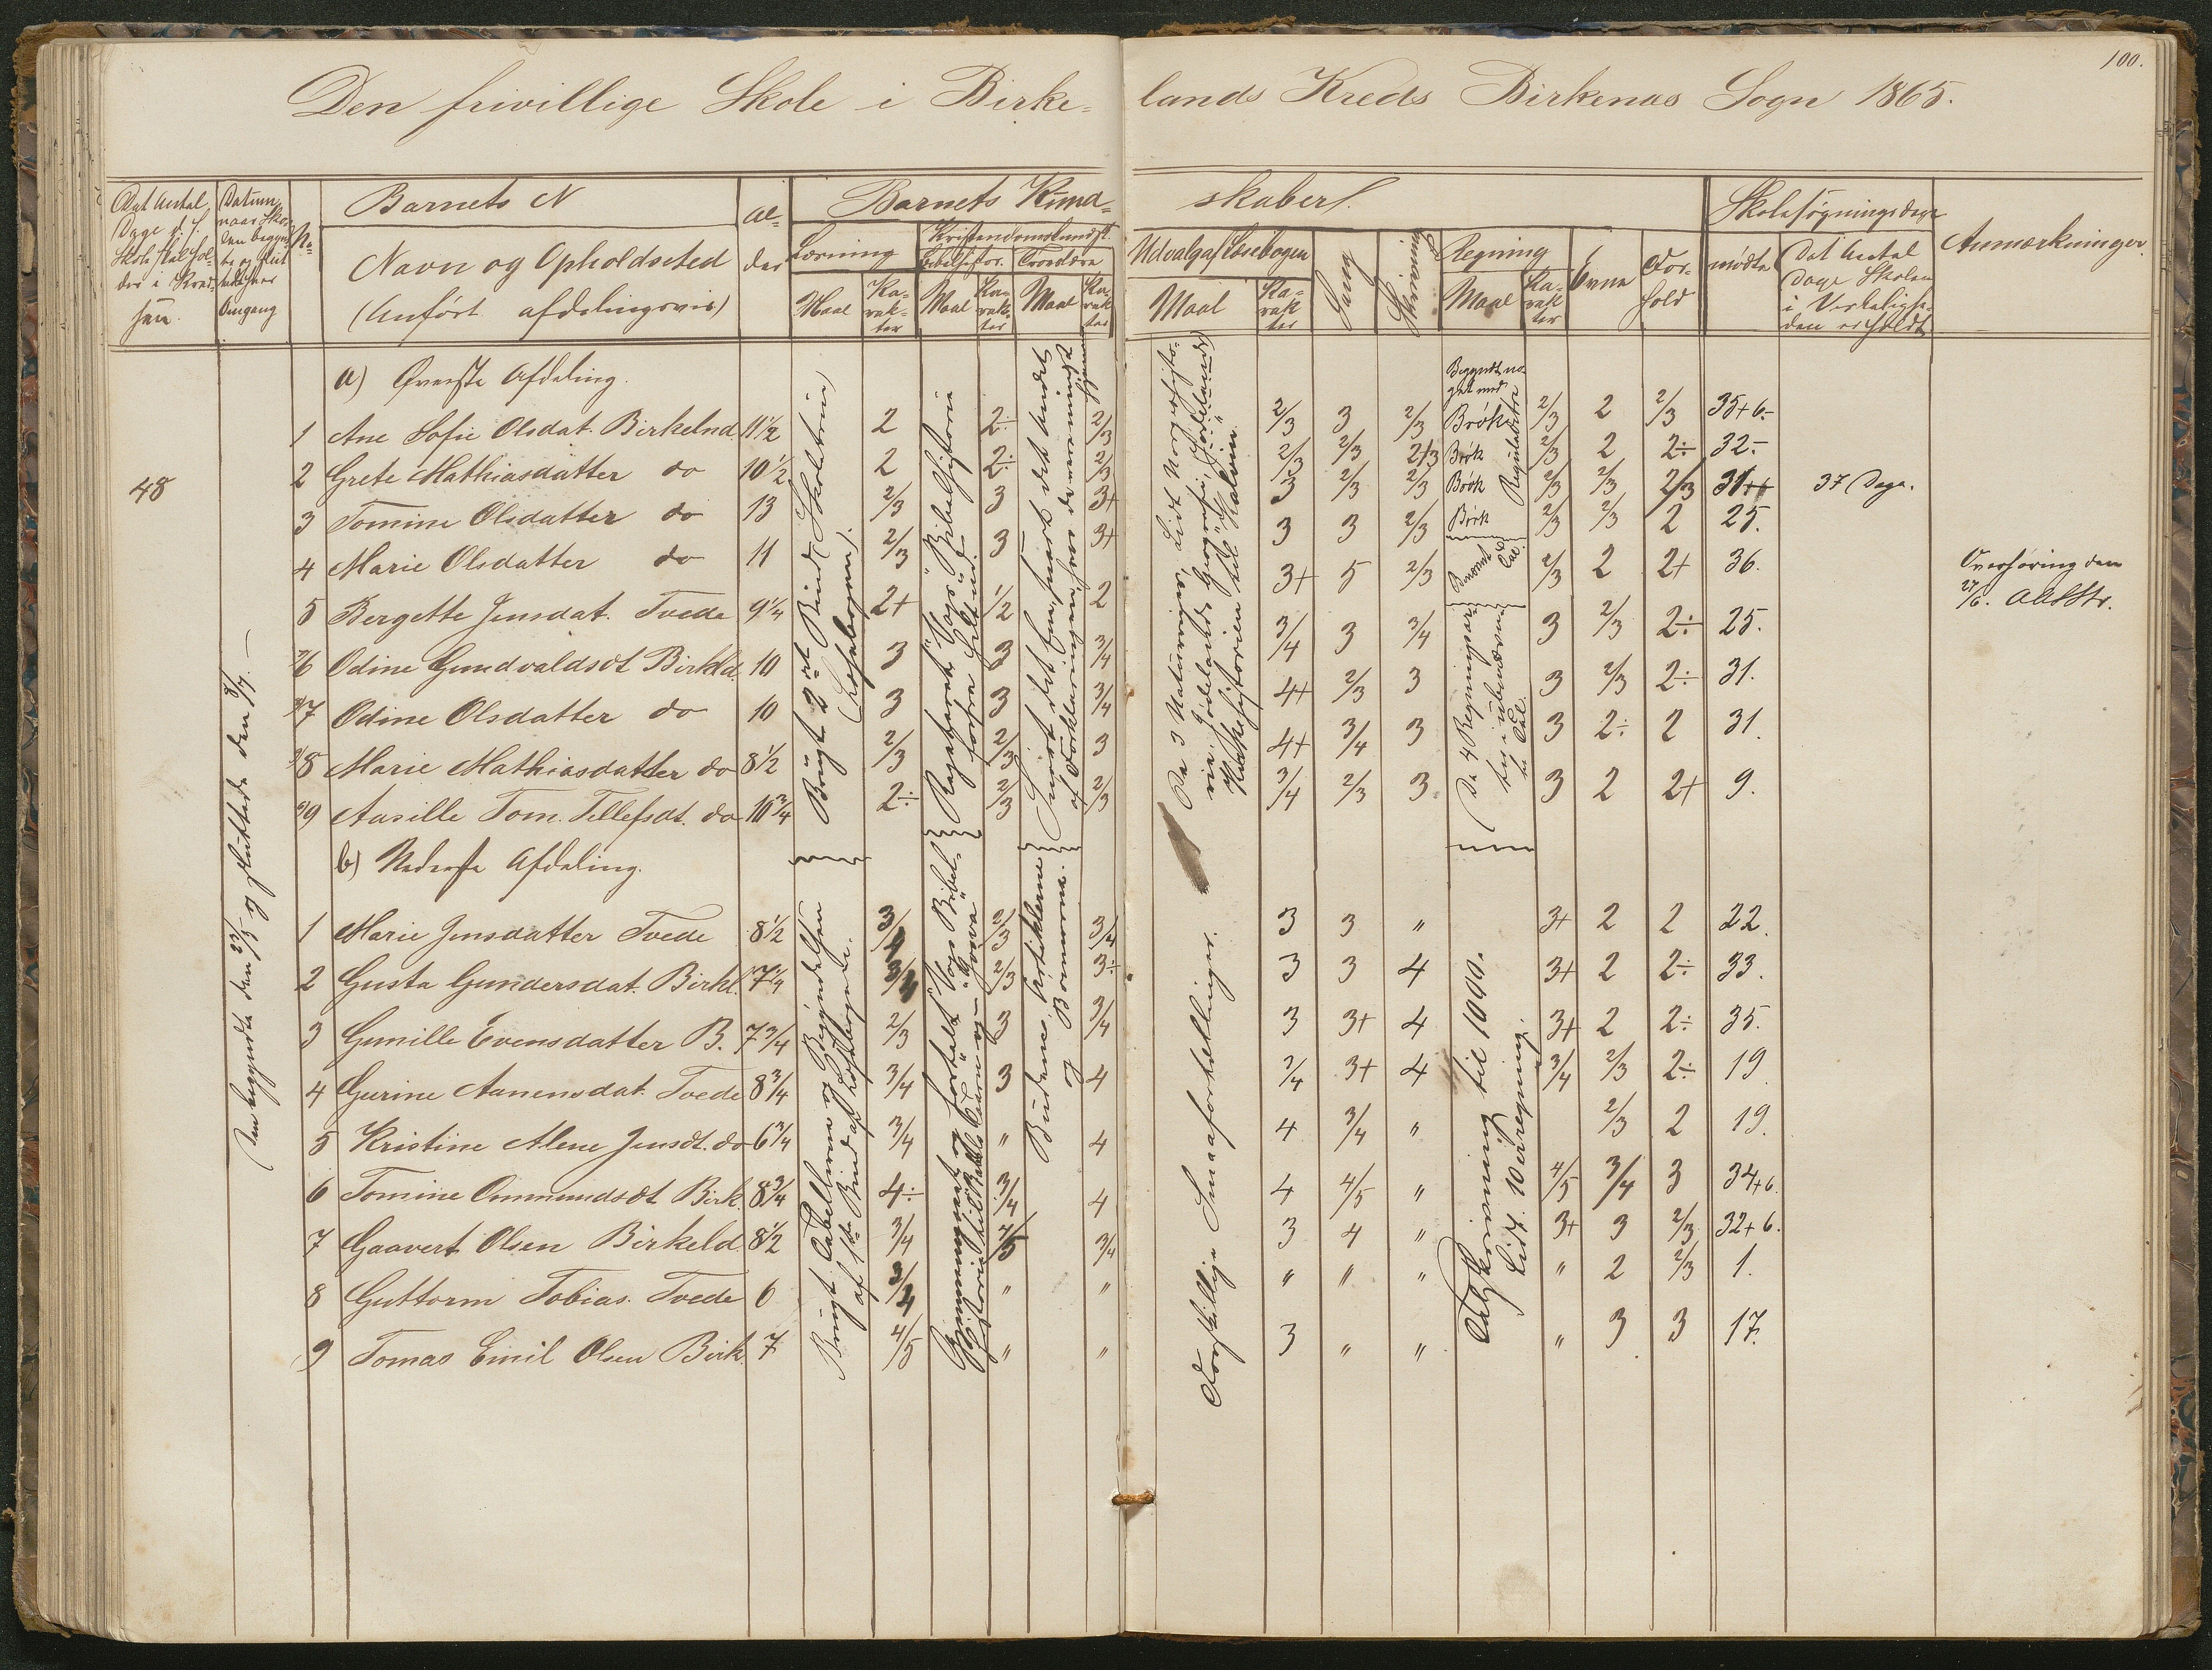 100.
Den frivillige Skole i Birke- lands Kreds Birkenæs Sogn 1865.
Det Antal Dage d. f. Skole skal holdes i Kredsen
Datum, naar Skolen begyndte og sluttedes hver Omgang
No
Barnets N
Navn og Opholdssted
(anført afdelingsvis)
Alder
Barnets Kund- skaber.
Læsning
Maal
Karakter
Kristendomskundsk.
Bibelhistor.
Maal
Karakter
Troeslære
Maal
Karakter
Udvalg af Læsebogen
Maal
Karakter
Sang
Skrivning
Regning
Maal
Karakter
Evne
Forhold
Skolesøgningsdage
mødte
Det Antal Dage Skolen i Virkeligheden er holdt
Anmærkninger.
a) Øverste Afdeling.
1 Ane Sofie Olsdat. Birkelnd 11½ 2 2÷ 2/3 2/3 3 2/3 2/3 2 2/3 35+6.
2 Grete Mathiasdatter do 10½ 2 2÷ 2/3 2/3 2/3 2/3 2/3 2 2÷ 32.
48
3 Tomine Olsdatter do 13 2/3 3 3+ 3 2/3 2/3 2/3 2/3 2/3 37 Dage.
4 Marie Olsdatter do 11 2/3 3 3+ 3 3 2/3 2/3 2/3 2 25.
5 Bergette Jensdat. Tvede 9¼ 2+ ½ 2 3+ 5 2/3 2/3 2 2+ 36.
6 Odine Gundvaldsdt Birkld. 10 3 3 3/4 3/4 3 3/4 3 2/3 2÷ 25.
7 Odine Olsdatter do 10 3 3 3/4 4+ 2/3 3 3 2/3 2÷ 31.
8 Marie Mathiasdatter do 8½ 2/3 2/3 3 4+ 3/4 3 3 2÷ 2 31.
9 Aasille Tom. Tellefsdt. do 10¾ 2÷ 2/3 2/3 3/4 2/3 3 3 2 2+ 9.
Overhøring den
27/6.
Den begyndte den 23/5 og sluttede den 8/7.
Brugt 2det Bind (Skoletrin) (Læsebogen).
Repeteret Vogts Bibelhistorie
De 3 Naturriger, Lidt Norgeshistorie, Jødelands Geografi,
Kirkehistorien til Kalvin.
Begyndt noget med
Brøk
Brøk
Brøk
Brøk
Reguladetri
De 4 Regningsarter i ubenævnte Tal.
b) Nederste Afdeling.
1 Marie Jensdatter Tvede 8½ 3/4 2/3 3/4 3 3 " 3+ 2 2 22.
2 Gusta Gundersdat. Birkl. 7¼ 3/4 2/3 3÷ 3 3 4 3+ 2 2÷ 33.
3 Gunille Evensdatter B. 7¾ 2/3 3 3/4 3 3+ 4 3+ 2 2÷ 35.
4 Gurine Aanensdat. Tvede 8¾ 3/4 3 4 3/4 3+ 4 3/4 2/3 2÷ 19
5 Kristine Alene Jensdt. do 6¾ 3/4 " 4 4 3/4 " 2/3 2 19.
6 Tomine Ommundsdt Birk. 8¾ 4÷ 3/4 4 4 4/5 " 4/5 3/4 3 34+6.
7 Gaavert Olsen Birkeld. 8½ 3/4 4/5 3/4 3 4 " 3+ 3 2/3 32+6.
8 Guttorm Tobias. Tvede 6 3/4 " " " " " " 2 2/3 1.
9 Tomas Emil Olsen Birk. 7 4/5 " " 3 " " " 3 3 17.
Brugt Tabellerne og Begyndelsen af 1ste Bind af Læsebogen.
Gjennemgaaet og fortalt Vogts Bibelhistorie
Budene, Artiklerne og Bønnerne.
Forskjellige Smaafortellinger.
Talskrivning til 1000.
Lidt Hoveregning.